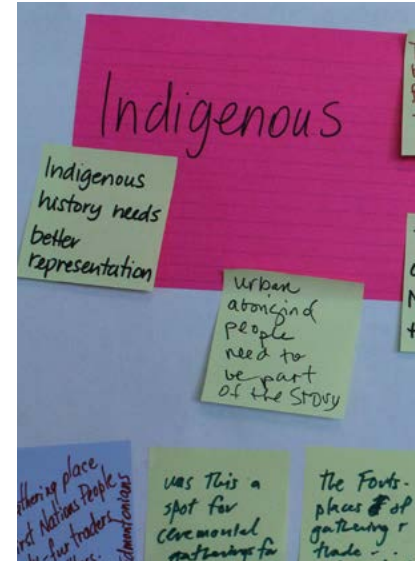 Indigenous
Indigenous
history needs
better
representation
urban
aboriginal
people
need to
be part
of the Story
gathering place
First Nations People
fur traders
Edmontonians
was This a
spot for
ceremonial
gatherings for
the Forts -
places of
gathering &
trade - -